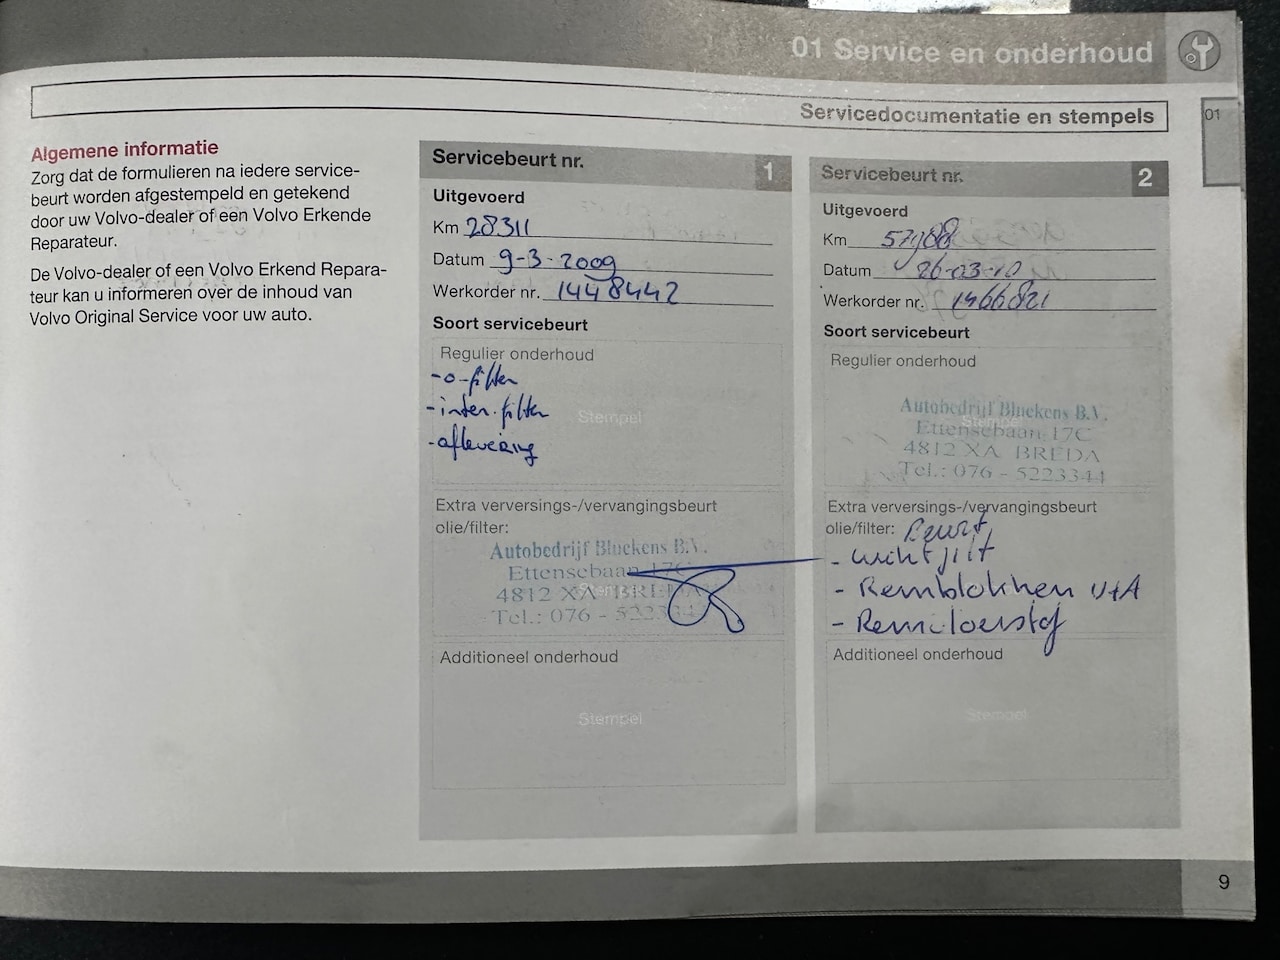 01 Service en onderhoud
Servicedocumentatie en stempels
01
Algemene informatie
Zorg dat de formulieren na iedere service-
beurt worden afgestempeld en getekend
door uw Volvo-dealer of een Volvo Erkende
Reparateur.
De Volvo-dealer of een Volvo Erkend Repara-
teur kan u informeren over de inhoud van
Volvo Original Service voor uw auto.
Servicebeurt nr. 1
Uitgevoerd
Km 28311
Datum 9-3-2009
Werkorder nr. 1448442
Soort servicebeurt
Regulier onderhoud
-o-filter
-inter.filter
-aflevering
Stempel
Extra verversings-/vervangingsbeurt
olie/filter:
Autobedrijf Bluekens B.V.
Ettensebaan 17C
4812 XA BREDA
Tel.: 076 - 5223344
Stempel
Additioneel onderhoud
Stempel
Servicebeurt nr. 2
Uitgevoerd
Km
Datum 26-03-10
Werkorder nr. 1466821
Soort servicebeurt
Regulier onderhoud
Stempel
Autobedrijf Bluekens B.V.
Ettensebaan 17C
4812 XA BREDA
Tel.: 076 - 5223344
Extra verversings-/vervangingsbeurt
olie/filter: Beurt,
- Remblokken V+A
- Remvloeistof
Additioneel onderhoud
Stempel
9